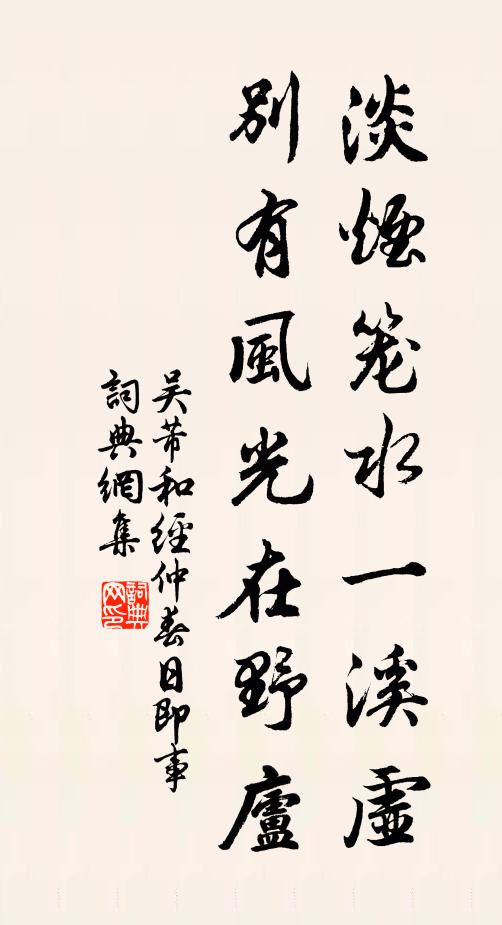 淡煙笼水一溪虛
別有風光在野廬
吴芾和經仲春日即事
詞典網集
詞典网印